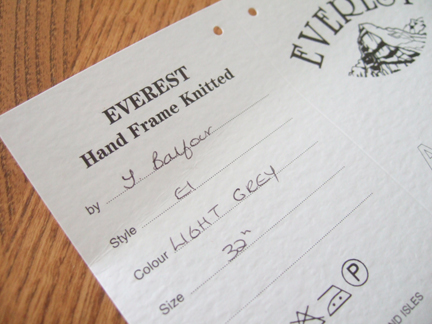 EVEREST
EVEREST
Hand Frame Knitted
by Y. Balfour
Style E1
Colour LIGHT GREY
Size 32"
P
AND ISLES